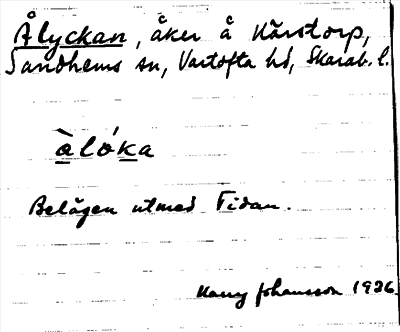 Ålyckan, åker å Kårstorp,
Sandhems sn, Vartofta hd, Skarab. l.
àlóka
Belägen utmed Tidan.
Harry Johansson 1926.